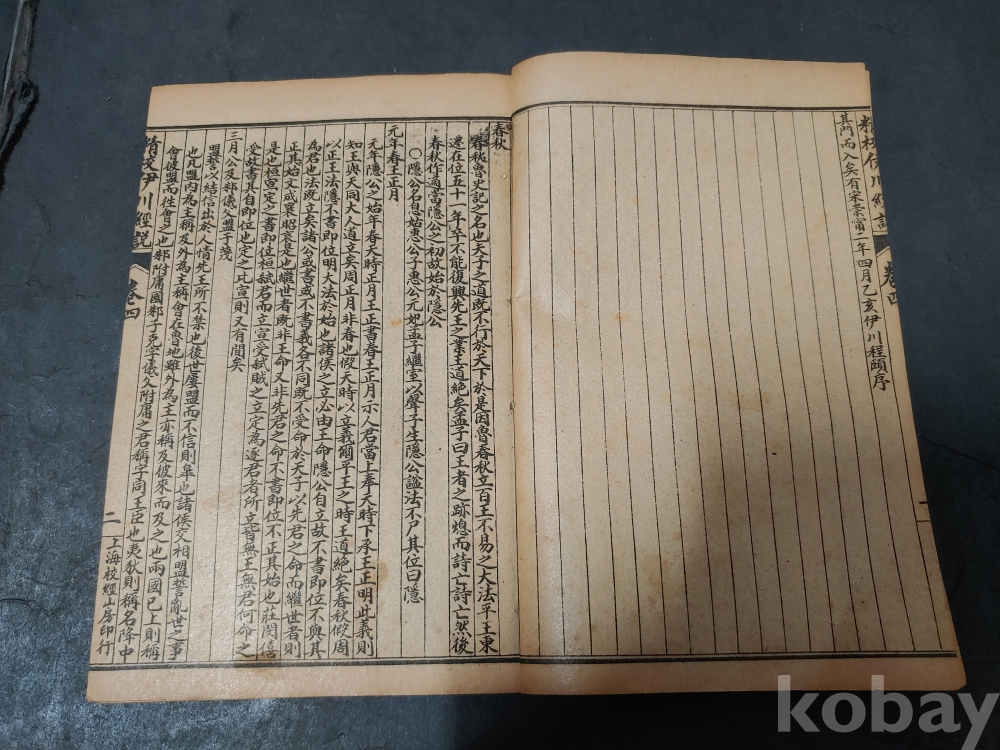 精校伊川經說
卷四
其門而入矣有宋崇甯二年四月乙亥伊川程頤序
一
春秋
春秋魯史記之名也夫子之道既不行於天下於是因魯春秋立百王不易之大法平王東
遷在位五十一年卒不能復興先王之業王道絶矣孟子曰王者之跡熄而詩亡詩亡然後
春秋作適當隱公之初故始於隱公
○隱公名息始惠公子惠公元妃孟子繼室以聲子生隱公謚法不尸其位曰隱
元年春王正月
元年隱公之始年春天時正月王正書春王正月示人君當上奉天時下承王正明此義則
知王與天同大人道立矣周正月非春也假天時以立義爾平王之時王道絶矣春秋假周
以正王法隱不書即位明大法於始也諸侯之立必由王命隱公自立故不書即位不與其
為君也法既立矣諸公或書或不書義各不同既不受命於天子以先君之命而繼世者則
正其始文成襄昭哀是也繼世者既非王命又非先君之命不書即位不正其始也莊閔僖
是也桓宣定之書即位桓弑君而立宣受弑賊之立定為逐君者所立皆無王無君何命之
受故書其自即位也定之比宣則又有間矣
三月公及邾儀父盟于蔑
盟誓以結信出於人情先王所不禁也後世屢盟而不信則辠也諸侯交相盟誓亂世之事
也凡盟內為主稱及外為主稱會在魯地雖外為主亦稱及彼來而及之也兩國已上則稱
會彼盟而往會之也邾附庸國邾子克字儀父附庸之君稱字同王臣也夷狄則稱名降中
精校伊川經說
卷四
二
上海校經山房印行
kobay